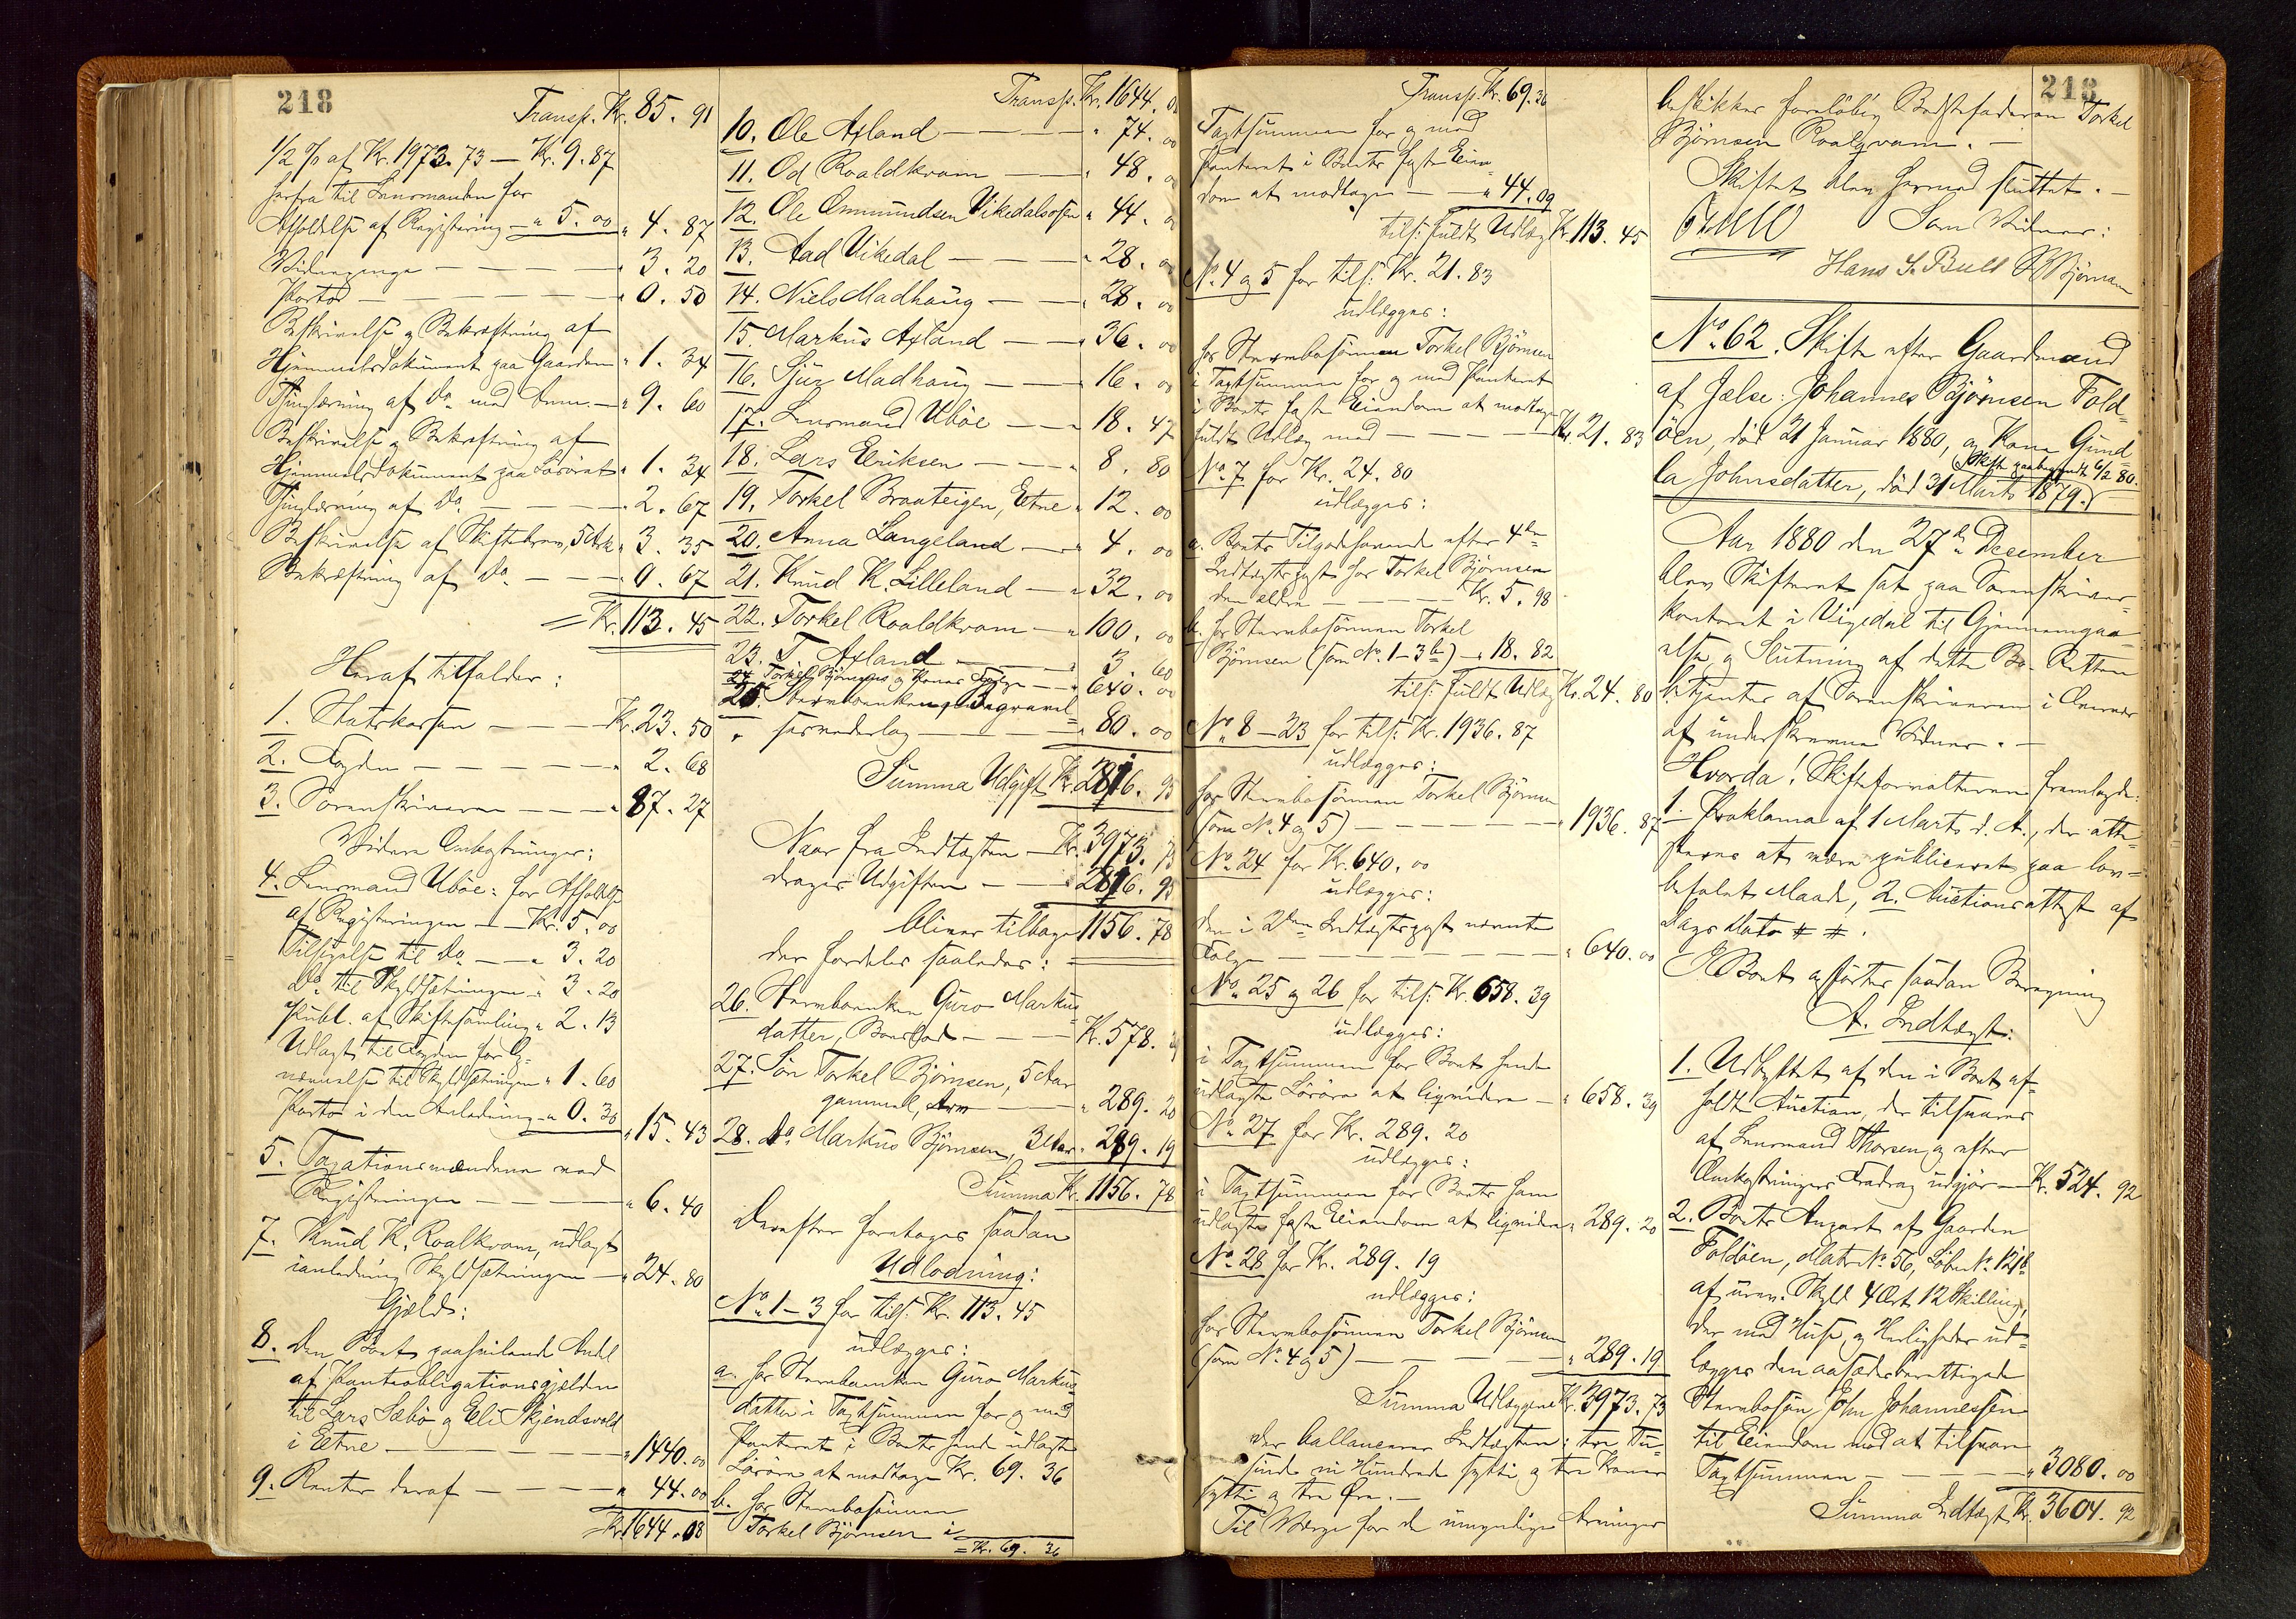 218
Transp. Kr. 85. 91
1/2 % af Kr. 1973. 73 — Kr. 9. 87
herfra til Lensmanden for
Afholdelse af Registrering — " 5. 00 " 4. 87
Vidnepenge — — — — " 3. 20
Porto — — — — " 0. 50
Beskrivelse og Bekræftning af
Hjemmelsdokument paa Gaarden " 1. 34
Thinglæsning af Do med Anm. — " 9. 60
Beskrivelse og Bekræftning af
Hjemmelsdokument paa Løsøret " 1. 34
Thinglæsning af Do — — — " 2. 67
Beskrivelse af Skiftebrev, 5 Ark " 3. 35
Bekræftning af Do — — — " 0. 67
= Kr. 113. 45
Heraf tilfalder:
1. Statskassen — — — Kr. 23. 50
2. Fogden — — — — " 2. 68
3. Sorenskriveren — — — " 87. 27
Videre Omkostninger:
4. Lensmand Ubøe: for Afholdelse
af Registreringen — — Kr. 5. 00
Tilsigelse til Do — — " 3. 20
Do til Skyldsætningen " 3. 20
Publ. af Skiftesamling " 2. 13
Udlagt til Fogden for Op=
nævnelse til Skyldsætningen " 1. 60
Porto i den Anledning " 0. 30 " 15. 43
5. Taxationsmændene ved
Registreringen — — — — " 6. 40
7. Knud K. Roalkvam, udlagt
i anledning Skyldsætningen — " 24. 80
Gjæld:
8. Den Boet paahvilende Andel
af Pantobligationsgjælden
til Lars Sæbø og Eli Skjendsvold
i Etne — — — — — " 1440. 00
9. Renter deraf — — — — " 44. 00
Kr. 1644. 08
Transp. Kr. 1644.
10. Ole Axland — — — " 74. 00
11. Od Roaldkvam — — " 48.
12. Ole Ommundsen Vikedalsosen " 44.
13. Aad Vikedal — — — " 28.
14. Niels Madhaug — — " 28. 00
15. Markus Axland — — " 36. 00
16. Sjur Madhaug — — " 16. 00
17. Lensmand Ubøe — — " 18. 47
18. Lars Eeriksen — — — " 8. 80
19. Torkel Braateigen, Eetne " 12. 00
20. Anna Langeland — — " 4. 00
21. Knud K. Lilleland — — " 32. 00
22. Torkel Roaldkvam — " 100. 00
23. T. Axland — — — " 3. 60
24. Torkel Bjørnsens og Kones Følge — " 640. 00
25. Stervboenken, Begravel=
" sesvederlag — — — — " 80. 00
Summa Udgift Kr. 2816. 95
Naar fra Indtægten — Kr. 3973. 73
drages Udgiften — — 2816. 95
bliver tilbage 1156. 78
der fordeles saaledes:
26. Stervboenken Guro Markus
datter, Boeslod — — — Kr. 578.
27. Søn Torkel Bjørnsen, 5 Aar
gammel, Arv — — — " 289. 20
28. Do Markus Bjørnsen, 3 Aar " 289. 19
Summa Kr. 1156. 78
Derefter foretoges saadan
Udlodning:
No. 1—3 for tils. Kr. 113. 45
udlægges:
a. hos Stervboenken Guro Markus=
datter i Taxtsummen for og med
Panteret i Boets hende udlagte
Løsøre at modtage Kr. 69. 36
b. hos Stervbosønnen
Torkel Bjørnsen i
= Kr. 69. 36
Transp. Kr. 69. 36
Taxtsummen for og med
Panteret i Boets faste Eien=
dom at modtage — — " 44. 09
tils. fuldt Udlæg Kr. 113. 45
No. 4 og 5 for tils. Kr. 21. 83
udlægges:
hos Stervbosønnen Torkel Bjørnsen
i Taxtsummen for og med Panteret
i Boets faste Eiendom at modtage
fuldt Udlæg med — — — — Kr. 21. 83
No. 7 for Kr. 24. 80
udlægges:
a. Boets Tilgodehavende efter 4de
Indtægtspost hos Torkel Bjørnsen
den ældre — — — — Kr. 5. 98
b. hos Stervbosønnen Torkel
Bjørnsen (som No. 1—3 b) — " 18. 82
tils. fuldt Udlæg Kr. 24. 80
No. 8—23 for tils. Kr. 1936. 87
udlægges:
hos Stervbosønnen Torkel Bjørnsen
(som No. 4 og 5) — — — — — " 1936. 87
No. 24 for Kr. 640. 00
udlægges:
den i 2den Indtægtspost nævnte
Følge — — — — — — " 640. 00
No. 25 og 26 for tils. Kr. 658. 39
udlægges:
i Taxtsummen for Boets hende
udlagte Løsøre at liqvidere — " 658. 39
No. 27 for Kr. 289. 20
udlægges:
i Taxtsummen for Boets ham
udlagte faste Eiendom at liqvidere " 289. 20
No. 28 for Kr. 289. 19
udlægges:
hos Stervbosønnen Torkel Bjørnsen
(som No. 4 og 5) — — — — " 289. 19
Summa Udlæggene Kr. 3973. 73
der ballancerer Indtægten: tre Tu=
sinde ni Hundrede sytti og tre Kroner
sytti og tre Øre. —
Til Værge for de umyndige Arvinger
218
beskikkes foreløbig Bedstefaderen Torkel
Bjørnsen Roalqvam. —
Skiftet blev hermed sluttet. —
Som Vidner:
Hans S. Bull B Bjørnsen
No. 62. Skifte efter Gaardmand
af Jælse: Johannes Bjørnsen Fold=
øen, død 21 Januar 1880, og Kone Gund=
Skifte paabegyndt 6/2 80.
la Johnsdatter, død 31 Marts 1879.
Aar 1880 den 27de December
blev Skifteret sat paa Sorenskriver=
kontoret i Vigedal til Gjennemgaa=
else og Slutning af dette Bo. Retten
betjentes af Sorenskriveren i Overvær
af underskrevne Vidner. —
Hvorda! Skifteforvalteren fremlagde:
1. Proklama af 1 Marts d. A., der atte=
steres at være publiceret paa lov=
befalet Maade, 2. Auctionsattest af
Dags Dato # #.
I Boet opførtes saadan Beregning
A. Indtægt:
1. Udbyttet af den i Boet af=
holdte Auction, der tilsvares
af Lensmand Thorsen og efter
Omkostningers Fradrag udgjør — Kr. 524. 92
2. Boets Anpart af Gaarden
Foldøen, Matr. No. 56, Løbe No. 121 b
af urev. Skyld 4 Ort 12 Skilling,
der med Huse og Herligheder ud=
lægges den aasædesberettigede
Stervbosøn John Johannessen
til Eiendom mod at tilsvare
Taxtsummen — — — — " 3080. 00
Summa Indtægt Kr. 3604. 92